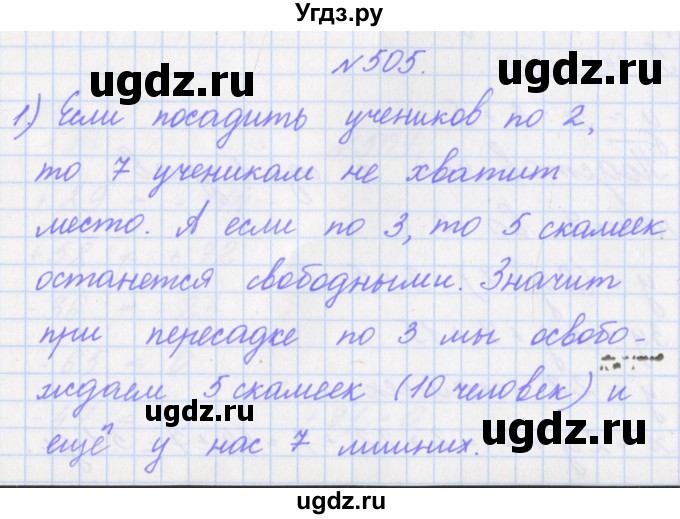 Угдз.ру
№505.
1) Если посадить учеников по 2,
то 7 ученикам не хватит
место. А если по 3, то 5 скамеек
останется свободными. Значит
при пересадке по 3 мы освобо-
ждаем 5 скамеек (10 человек) и
ещё у нас 7 лишних.
ugdz.ru
ugdz.ru
ugdz.ru
ugdz.ru
ugdz.ru
ugdz.ru